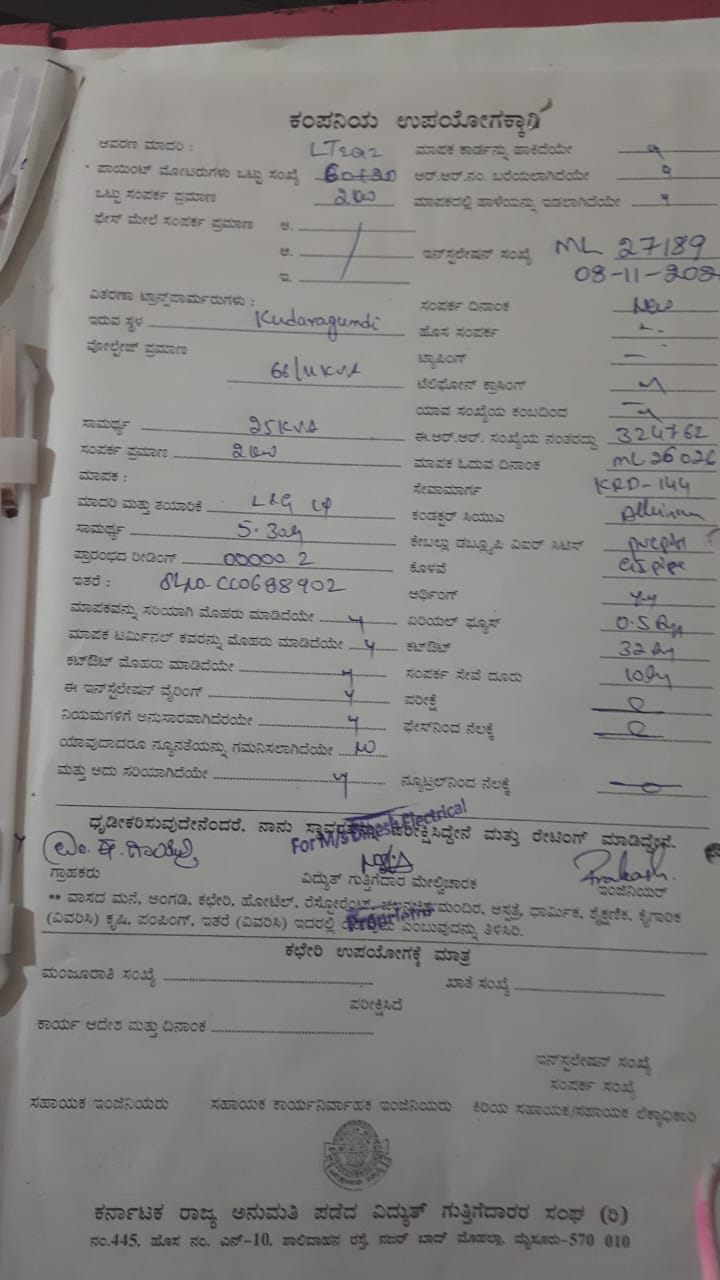 ಕಂಪನಿಯ ಉಪಯೋಗಕ್ಕಾಗಿ
ಆವರಣ ಮಾದರಿ :
ಮಾಪಕ ಕಾರ್ಡನ್ನು ಹಾಕಿದೆಯೇ y
ಪಾಯಿಂಟ್ ಮೋಟರುಗಳು ಒಟ್ಟು ಸಂಖ್ಯೆ
ಆರ್.ಆರ್.ನಂ. ಬರೆಯಲಾಗಿದೆಯೇ
ಒಟ್ಟು ಸಂಪರ್ಕ ಪ್ರಮಾಣ
ಮಾಪಕದಲ್ಲಿ ಹಾಳೆಯನ್ನು ಇಡಲಾಗಿದೆಯೇ y
ಫೇಸ್ ಮೇಲೆ ಸಂಪರ್ಕ ಪ್ರಮಾಣ ಅ.
ಆ.
ಇನ್‌ಸ್ಟಲೇಷನ್ ಸಂಖ್ಯೆ ML 27189
ಇ.
08-11-202
ವಿತರಣಾ ಟ್ರಾನ್ಸ್‌ಫಾರ್ಮರುಗಳು :
ಸಂಪರ್ಕ ದಿನಾಂಕ New
ಇರುವ ಸ್ಥಳ Kudaragundi
ಹೊಸ ಸಂಪರ್ಕ
ವೋಲ್ಟೇಜ್ ಪ್ರಮಾಣ
ಟ್ಯಾಪಿಂಗ್ —
ಟೆಲಿಫೋನ್ ಕ್ರಾಸಿಂಗ್
ಯಾವ ಸಂಖ್ಯೆಯ ಕಂಬದಿಂದ
ಸಾಮರ್ಥ್ಯ 25KVA
ಈ.ಆರ್.ಆರ್. ಸಂಖ್ಯೆಯ ನಂತರದ್ದು 324762
ಸಂಪರ್ಕ ಪ್ರಮಾಣ
ಮಾಪಕ ಓದುವ ದಿನಾಂಕ ML26026
ಮಾಪಕ :
ಸೇವಾಮಾರ್ಗ KRD-144
ಮಾದರಿ ಮತ್ತು ತಯಾರಿಕೆ L&G
ಕಂಡಕ್ಟರ್ ಸಿಯುಎ
ಸಾಮರ್ಥ್ಯ
ಕೇಬಲ್ಲು ಡಬ್ಲ್ಯೂಪಿ ವಿಐರ್ ಸಿಟಿಸ್
ಪ್ರಾರಂಭದ ರೀಡಿಂಗ್ 00000.2
ಕೊಳವೆ GI pipe
ಇತರೆ : Sl.no-CC0688902
ಆರ್ಥಿಂಗ್
ಮಾಪಕವನ್ನು ಸರಿಯಾಗಿ ಮೊಹರು ಮಾಡಿದೆಯೇ y
ಏರಿಯಲ್ ಫ್ಯೂಸ್
ಮಾಪಕ ಟರ್ಮಿನಲ್ ಕವರನ್ನು ಮೊಹರು ಮಾಡಿದೆಯೇ y
ಕಟ್‌ಔಟ್
ಕಟ್‌ಔಟ್ ಮೊಹರು ಮಾಡಿದೆಯೇ y
ಸಂಪರ್ಕ ಸೇವೆ ದೂರು
ಈ ಇನ್‌ಸ್ಟಲೇಶನ್ ವೈರಿಂಗ್ y
ಪರೀಕ್ಷೆ
ನಿಯಮಗಳಿಗೆ ಅನುಸಾರವಾಗಿದೆರಯೇ y
ಫೇಸ್‌ನಿಂದ ನೆಲಕ್ಕೆ
ಯಾವುದಾದರೂ ನ್ಯೂನತೆಯನ್ನು ಗಮನಿಸಲಾಗಿದೆಯೇ no
ಮತ್ತು ಅದು ಸರಿಯಾಗಿದೆಯೇ y
ನ್ಯೂಟ್ರಲ್‌ನಿಂದ ನೆಲಕ್ಕೆ
ಧೃಡೀಕರಿಸುವುದೇನೆಂದರೆ, ನಾನು ಪರೀಕ್ಷಿಸಿದ್ದೇನೆ ಮತ್ತು ರೇಟಿಂಗ್ ಮಾಡಿದ್ದೇನೆ.
For M/s Dinesh Electrical
Prakash.
ಗ್ರಾಹಕರು
ವಿದ್ಯುತ್ ಗುತ್ತಿಗೆದಾರ ಮೇಲ್ವಿಚಾರಕ
ಇಂಜಿನಿಯರ್
** ವಾಸದ ಮನೆ, ಅಂಗಡಿ, ಕಛೇರಿ, ಹೋಟೆಲ್, ರೆಸ್ಟೋರೆಂಟ್, ಚಲನಚಿತ್ರ ಮಂದಿರ, ಆಸ್ಪತ್ರೆ, ಧಾರ್ಮಿಕ, ಶೈಕ್ಷಣಿಕ, ಕೈಗಾರಿಕ
(ವಿವರಿಸಿ) ಕೃಷಿ, ಪಂಪಿಂಗ್, ಇತರೆ (ವಿವರಿಸಿ) ಇದರಲ್ಲಿ ಎಂಬುವುದನ್ನು ತಿಳಿಸಿರಿ.
Proprietor
ಕಛೇರಿ ಉಪಯೋಗಕ್ಕೆ ಮಾತ್ರ
ಮಂಜೂರಾತಿ ಸಂಖ್ಯೆ
ಖಾತೆ ಸಂಖ್ಯೆ
ಪರೀಕ್ಷಿಸಿದೆ
ಕಾರ್ಯ ಆದೇಶ ಮತ್ತು ದಿನಾಂಕ
ಇನ್‌ಸ್ಟಲೇಷನ್ ಸಂಖ್ಯೆ
ಸಂಪರ್ಕ ಸಂಖ್ಯೆ
ಸಹಾಯಕ ಇಂಜಿನಿಯರು ಸಹಾಯಕ ಕಾರ್ಯನಿರ್ವಾಹಕ ಇಂಜಿನಿಯರು ಕಿರಿಯ ಸಹಾಯಕ/ಸಹಾಯಕ ಲೆಕ್ಕಾಧಿಕಾರಿ
ಕರ್ನಾಟಕ ರಾಜ್ಯ ಅನುಮತಿ ಪಡೆದ ವಿದ್ಯುತ್ ಗುತ್ತಿಗೆದಾರರ ಸಂಘ (ರಿ)
ನಂ.445, ಹೊಸ ನಂ. ಎನ್-10, ಶಾಲಿವಾಹನ ರಸ್ತೆ, ನಜರ್ ಬಾದ್ ಮೊಹಲ್ಲಾ, ಮೈಸೂರು-570 010